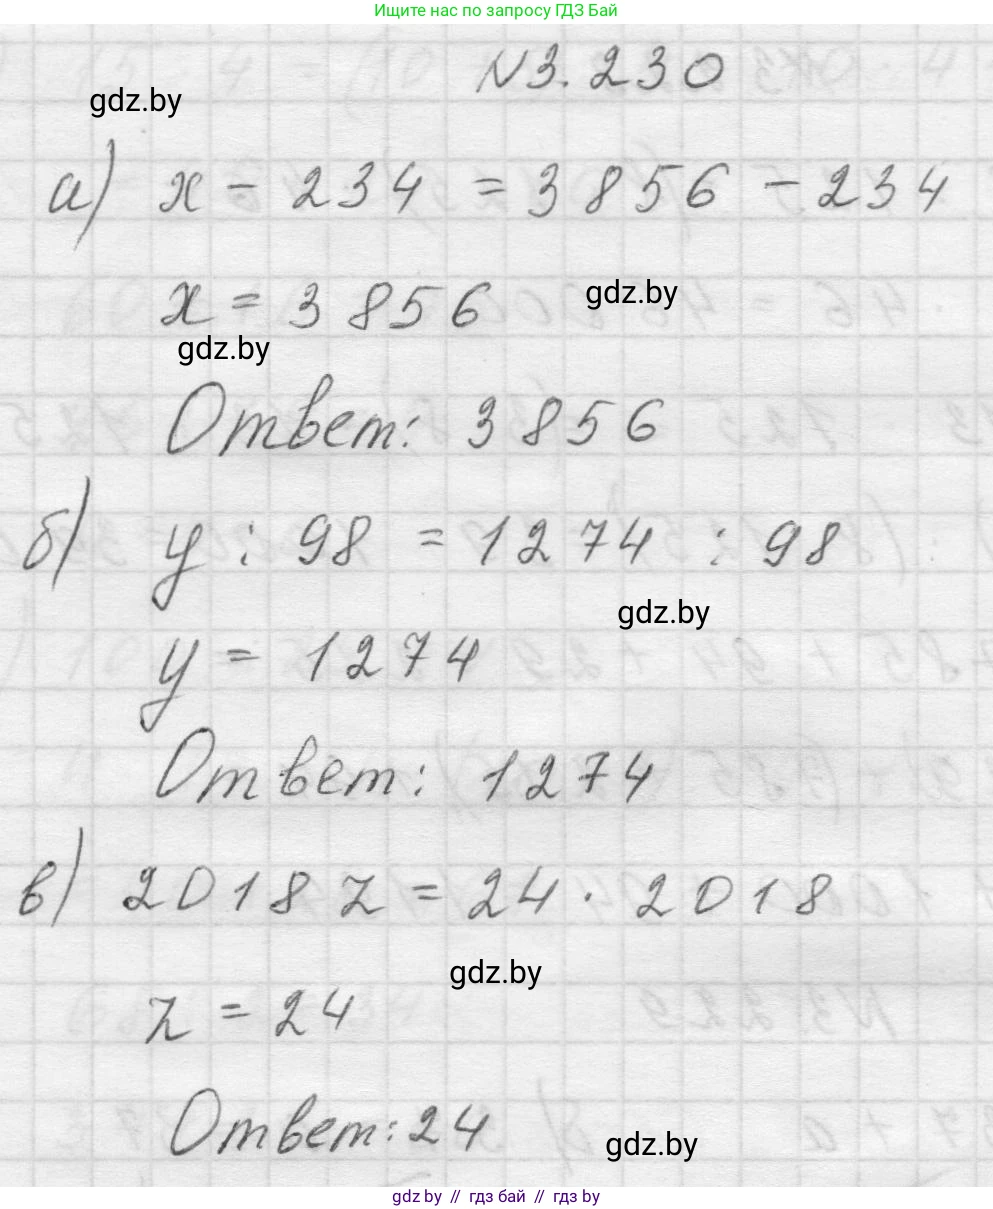 Ищите нас по запросу ГДЗ Бай
N3.230
gdz.by
а) x - 234 = 3856 - 234
x = 3856
gdz.by
gdz.by
Ответ: 3856
б) y : 98 = 1274 : 98
gdz.by
y = 1274
Ответ: 1274
в) 2018 z = 24 · 2018
gdz.by
z = 24
Ответ: 24
gdz.by
gdz by // гдз бай // гдз by